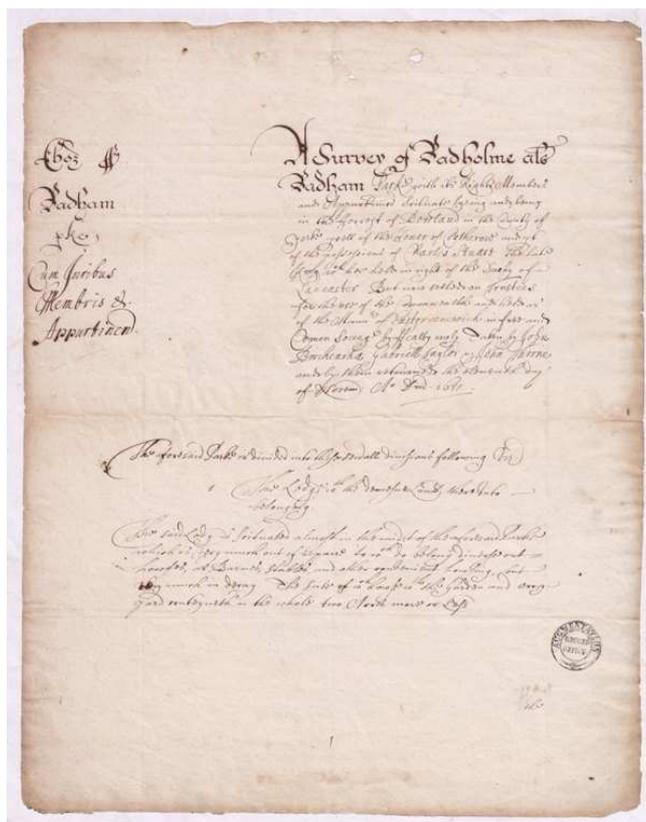 Eboz ss
Radham
pke
Cum Juribus
Membris &
Appurtinen
A Survey of Radholme als
Radham Parke with its Rights Members
and Appurtinences Scituate lyeing and being
in the Forrest of Bowland in the County of
Yorke of the honor of and pt
of the possessions of Charles Stuart The late
King wch hee held in right of the Dutchy of
Lancaster But now setled on Trustees
for the use of the Commonwealth and held as
of the Mannor of Eastgreenwich in free and
Comon Soccage by fealty only Taken by John
Gabriell Taylor John Thorne
and by them returned the eleventh day
of Ao Dni 1651
The aforesaid Parke is divided into these severall divisions following Viz
The Lodge wth the demesne Lands thereunto
belonging
The said Lodge is Scituated almost in the midst of the aforesaid Parke
which is very much out of repaire to wch do belong divers out
houses, as Barnes, Stables and other convenient housing, but
very much in decay The Scite of wch house wth the Garden and
yard conteyneth in the whole two Acres more or Less
AUGMENTATION
OFFICE
1